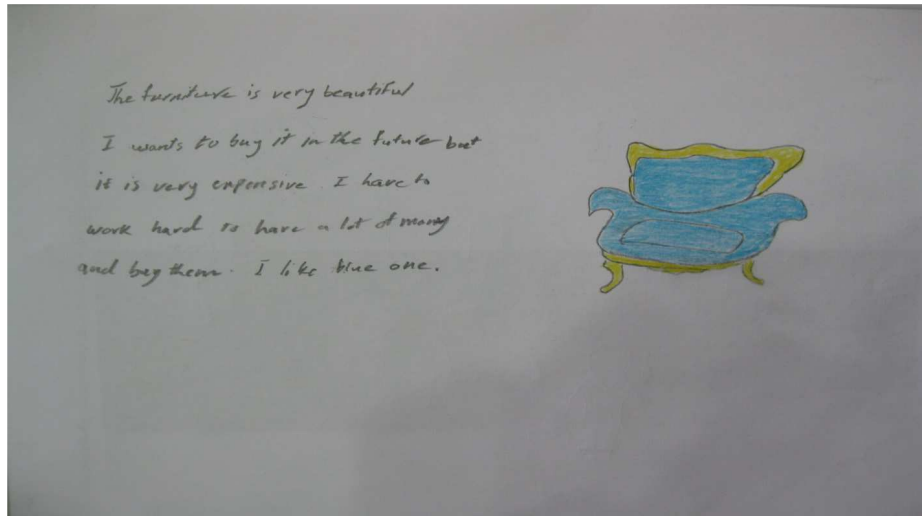 The furniture is very beautiful
I wants to buy it in the future but
it is very expensive. I have to
work hard to have a lot of many
and bey them. I like blue one.